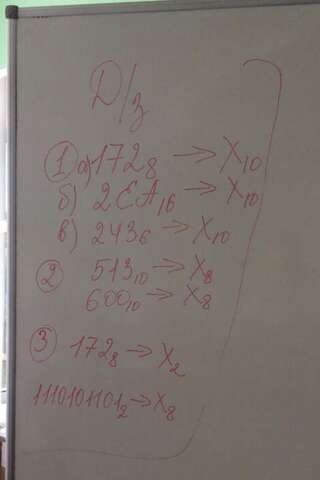 Д/з
① а) 172₈ → X₁₀
б) 2EA₁₆ → X₁₀
в) 243₆ → X₁₀
② 513₁₀ → X₈
600₁₀ → X₈
③ 172₈ → X₂
111010110₁₂ → X₈